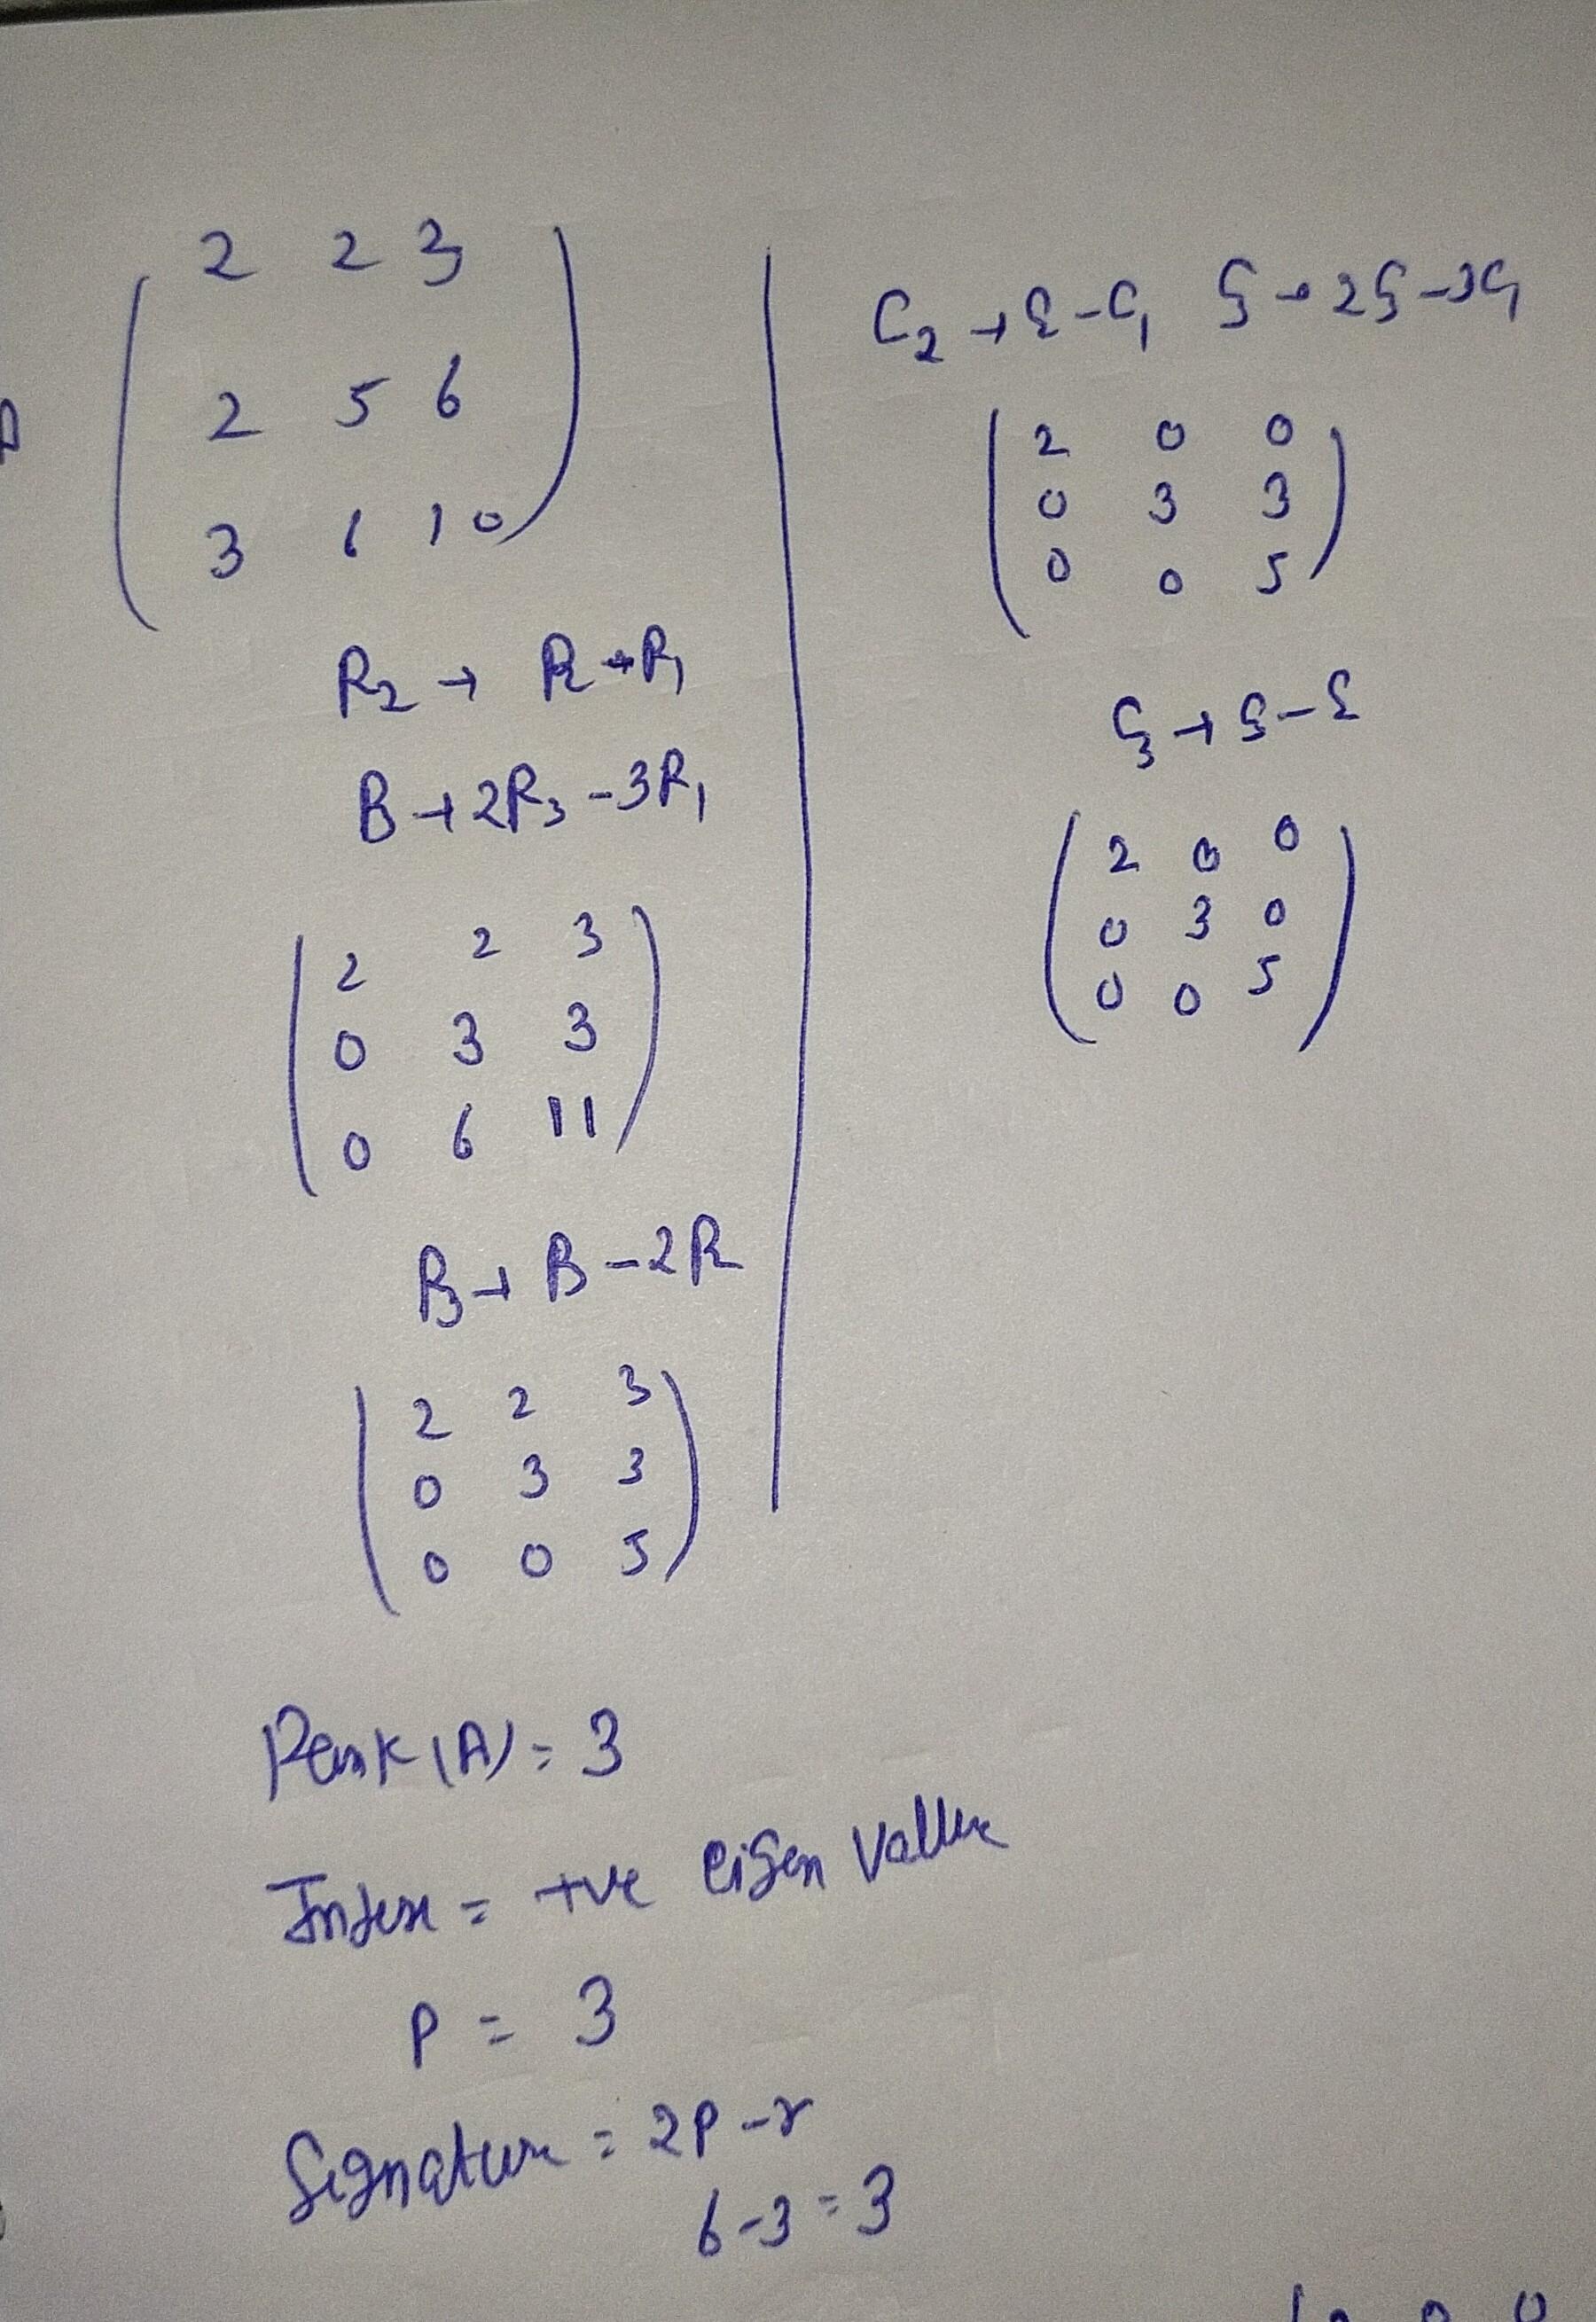 A
2 2 3
2 5 6
3 6 10
R2 → R2 - R1
R3 → 2R3 - 3R1
2 2 3
0 3 3
0 6 11
R3 → R3 - 2R2
2 2 3
0 3 3
0 0 5
C2 → C2 - C1 C3 → 2C3 - 3C1
2 0 0
0 3 3
0 0 5
C3 → C3 - C2
2 0 0
0 3 0
0 0 5
Rank (A) = 3
= +ve eigen value
P = 3
Signature = 2P - r
6 - 3 = 3